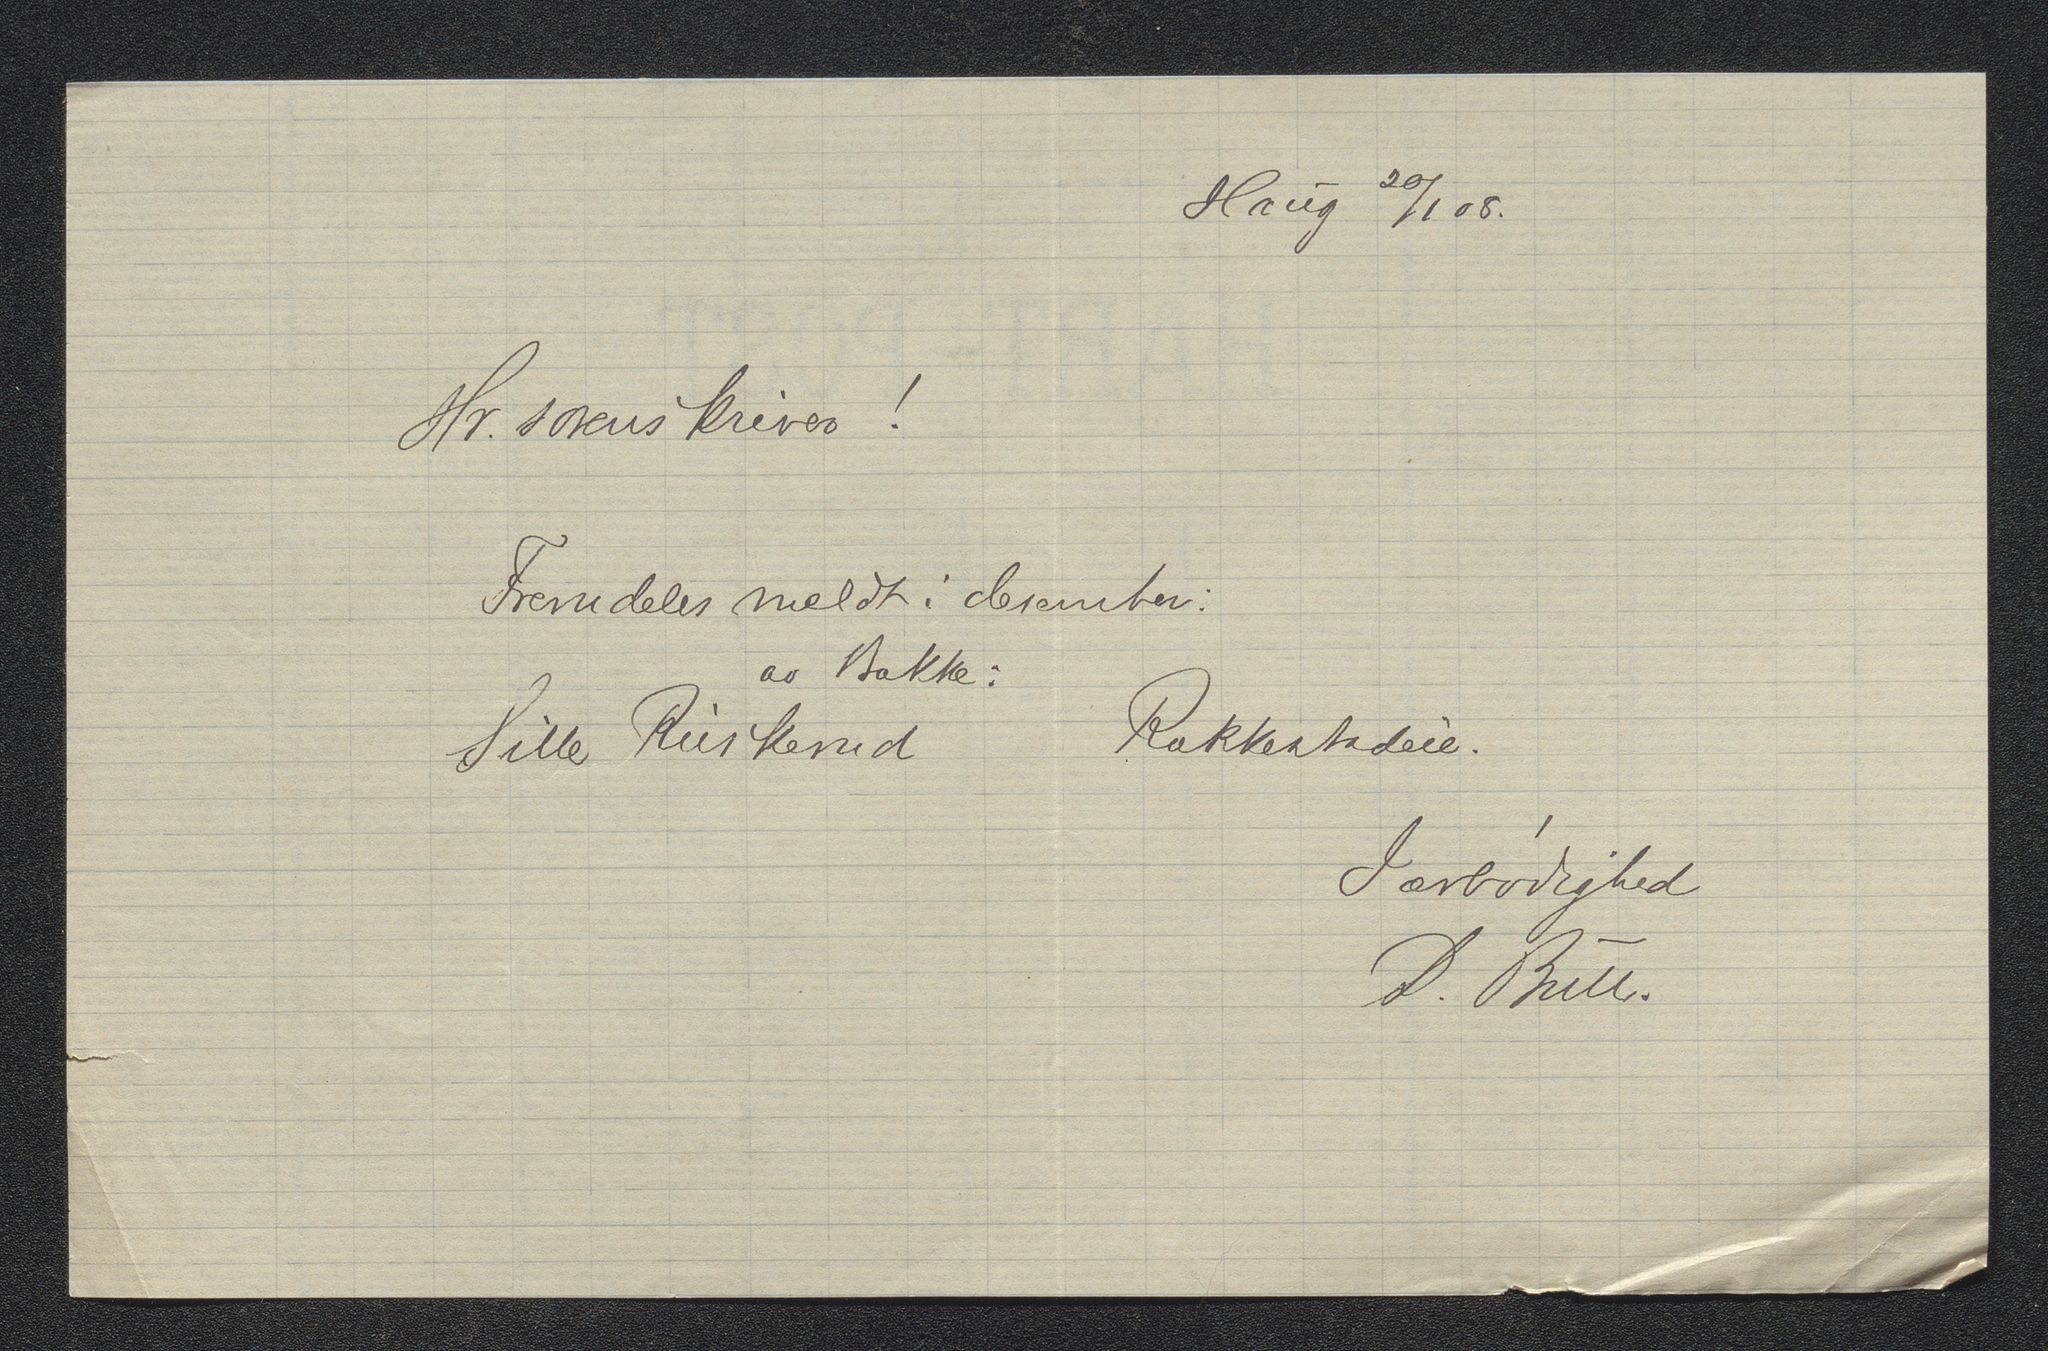 Haug 20/1 08.
Hr. sorenskriver!
Fremdeles meldt i desember:
av Bakke:
Sille Ruskerud Rakkestadeie.
I ærbødighed
D. Bull.